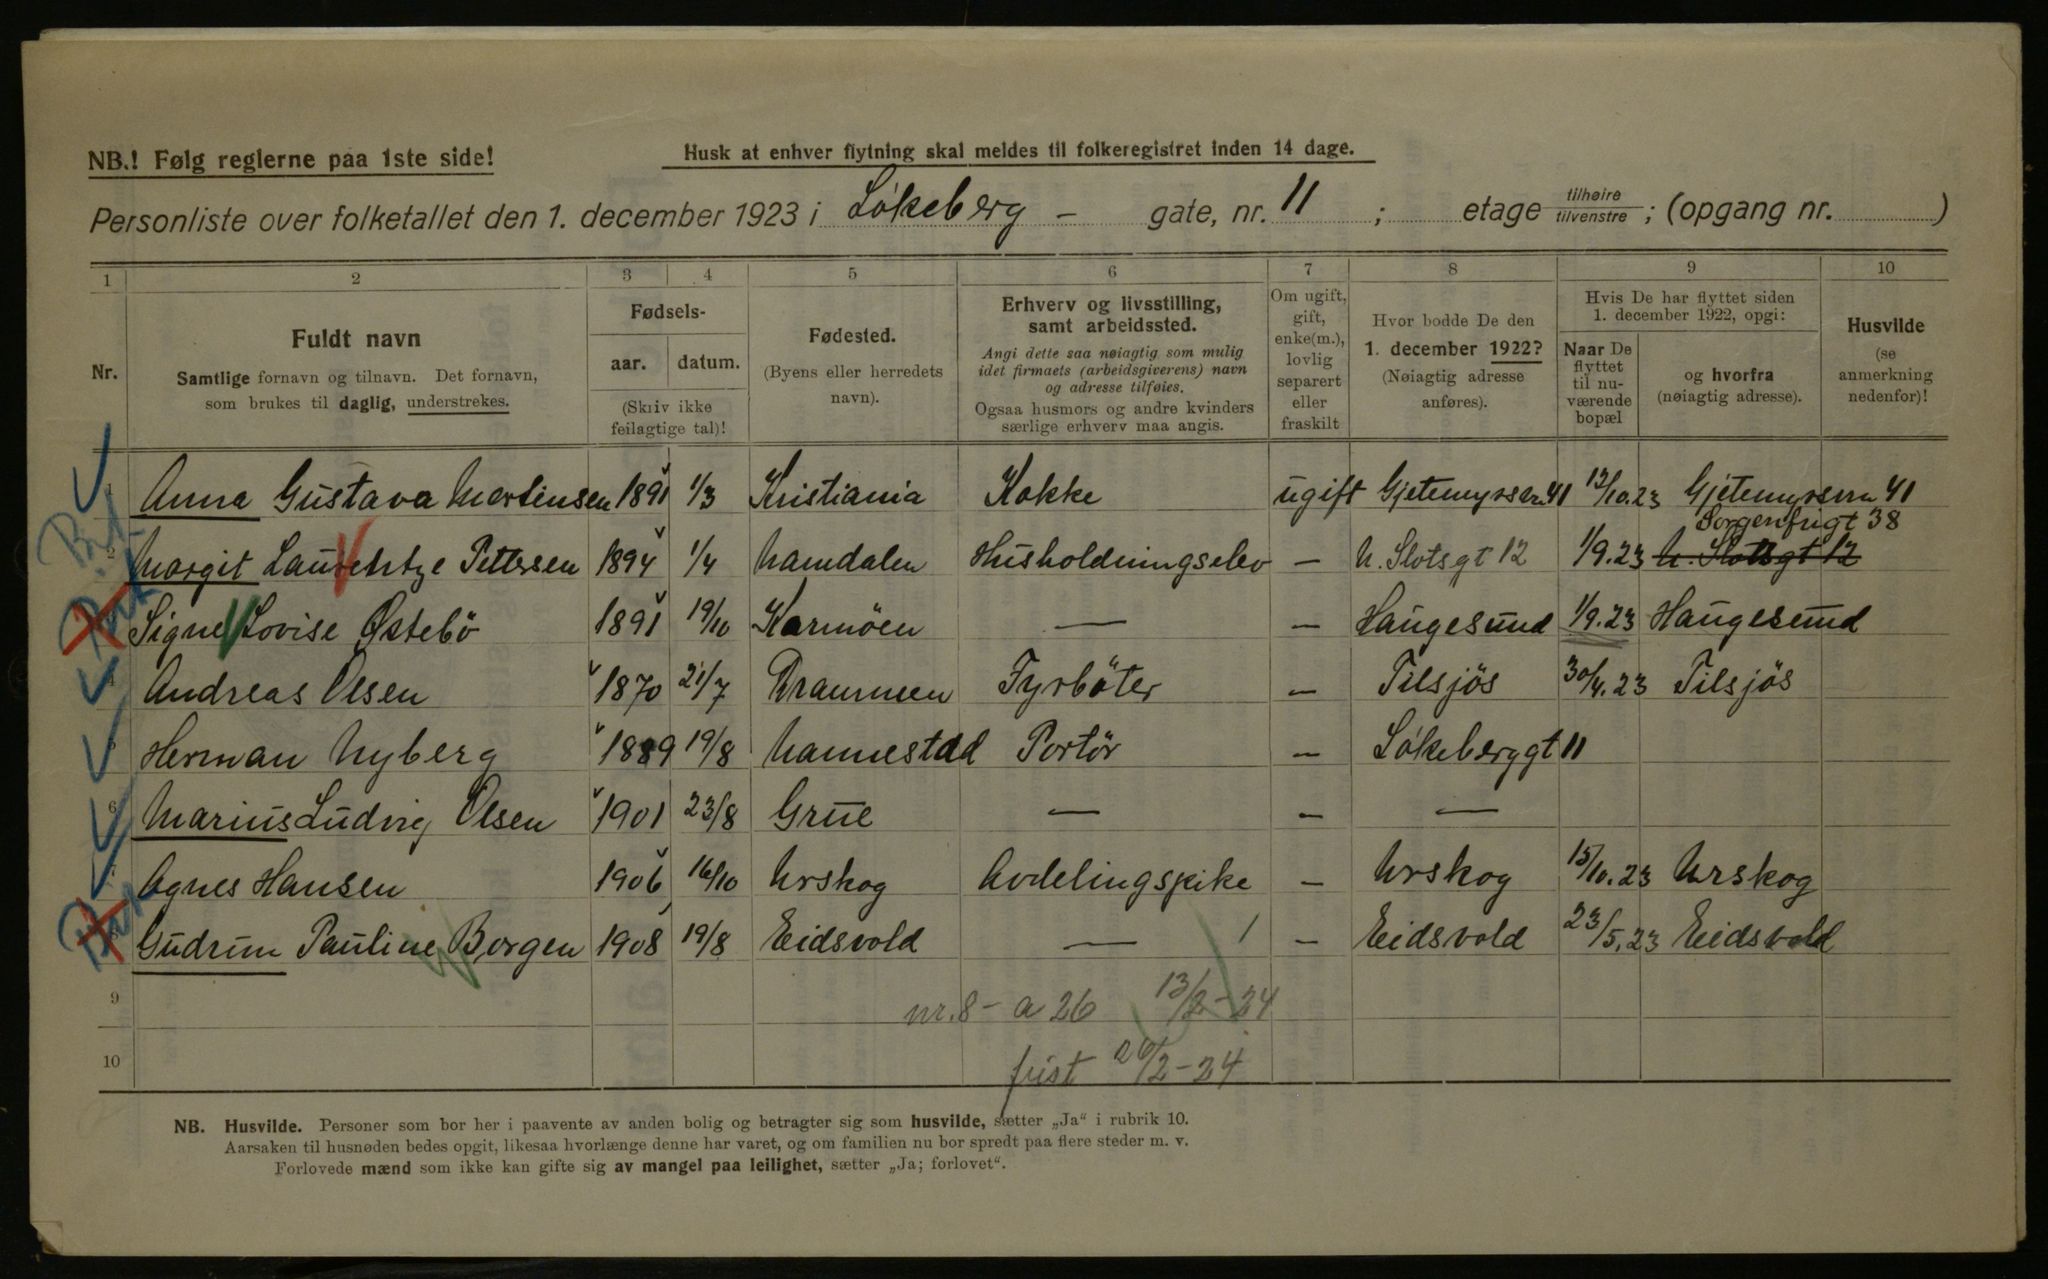 NB.! Følg reglerne paa 1ste side!
Husk at enhver flytning skal meldes til folkeregistret inden 14 dage.
Personliste over folketallet den 1. december 1923 i Lökeberg - gate, nr. 11 ; etage tilhøire tilvenstre ; (opgang nr. )
1 2 3 4 5 6 7 8 9 10
Nr.
Fuldt navn
Samtlige fornavn og tilnavn. Det fornavn,
som brukes til daglig, understrekes.
Fødsels-
aar. datum.
(Skriv ikke
feilagtige tal)!
Fødested.
(Byens eller herredets
navn).
Erhverv og livsstilling,
samt arbeidssted.
Angi dette saa nøiagtig som mulig
idet firmaets (arbeidsgiverens) navn
og adresse tilføies.
Ogsaa husmors og andre kvinders
særlige erhverv maa angis.
Om ugift,
gift,
enke(m.),
lovlig
separert
eller
fraskilt
Hvor bodde De den
1. december 1922?
(Nøiagtig adresse
anføres).
Hvis De har flyttet siden
1. december 1922, opgi:
Naar De
flyttet
til nu-
værende
bopæl
og hvorfra
(nøiagtig adresse).
Husvilde
(se
anmerkning
nedenfor)!
1 Anna Gustava Martinsen 1891 1/3 Kristiania Kokke ugift Gjetemyrsvn 41 13/10.23 Gjetemyrsvn 41
Sorgenfrigt 38
2 Margit Laurentze Pettersen 1894 1/4 Namdalen Husholdningselev — N. Slotsgt 12 1/9.23 N. Slotsgt 12
Signe Lovise Østebö 1891 19/10 Karmöen — — Haugesund 1/9.23 Haugesund
4 Andreas Olsen 1870 21/7 Drammen Fyrböter — Tilsjös 30/4.23 Tilsjös
5 Herman Nyberg 1889 19/8 Nannestad Portör — Lökeberggt 11
6 Marius Ludvig Olsen 1901 23/8 Grue — — —
7 Agnes Hansen 1906 16/10 Urskog Avdelingspike — Urskog 15/10.23 Urskog
8 Gudrun Pauline Borgen 1908 19/8 Eidsvold — 1 — Eidsvold 23/5.23 Eidsvold
9 nr. 8 - a 26 13/2-24
10 frist 20/2-24
NB. Husvilde. Personer som bor her i paavente av anden bolig og betragter sig som husvilde, sætter „Ja“ i rubrik 10.
Aarsaken til husnøden bedes opgit, likesaa hvorlænge denne har varet, og om familien nu bor spredt paa flere steder m. v.
Forlovede mænd som ikke kan gifte sig av mangel paa leilighet, sætter „Ja; forlovet“.